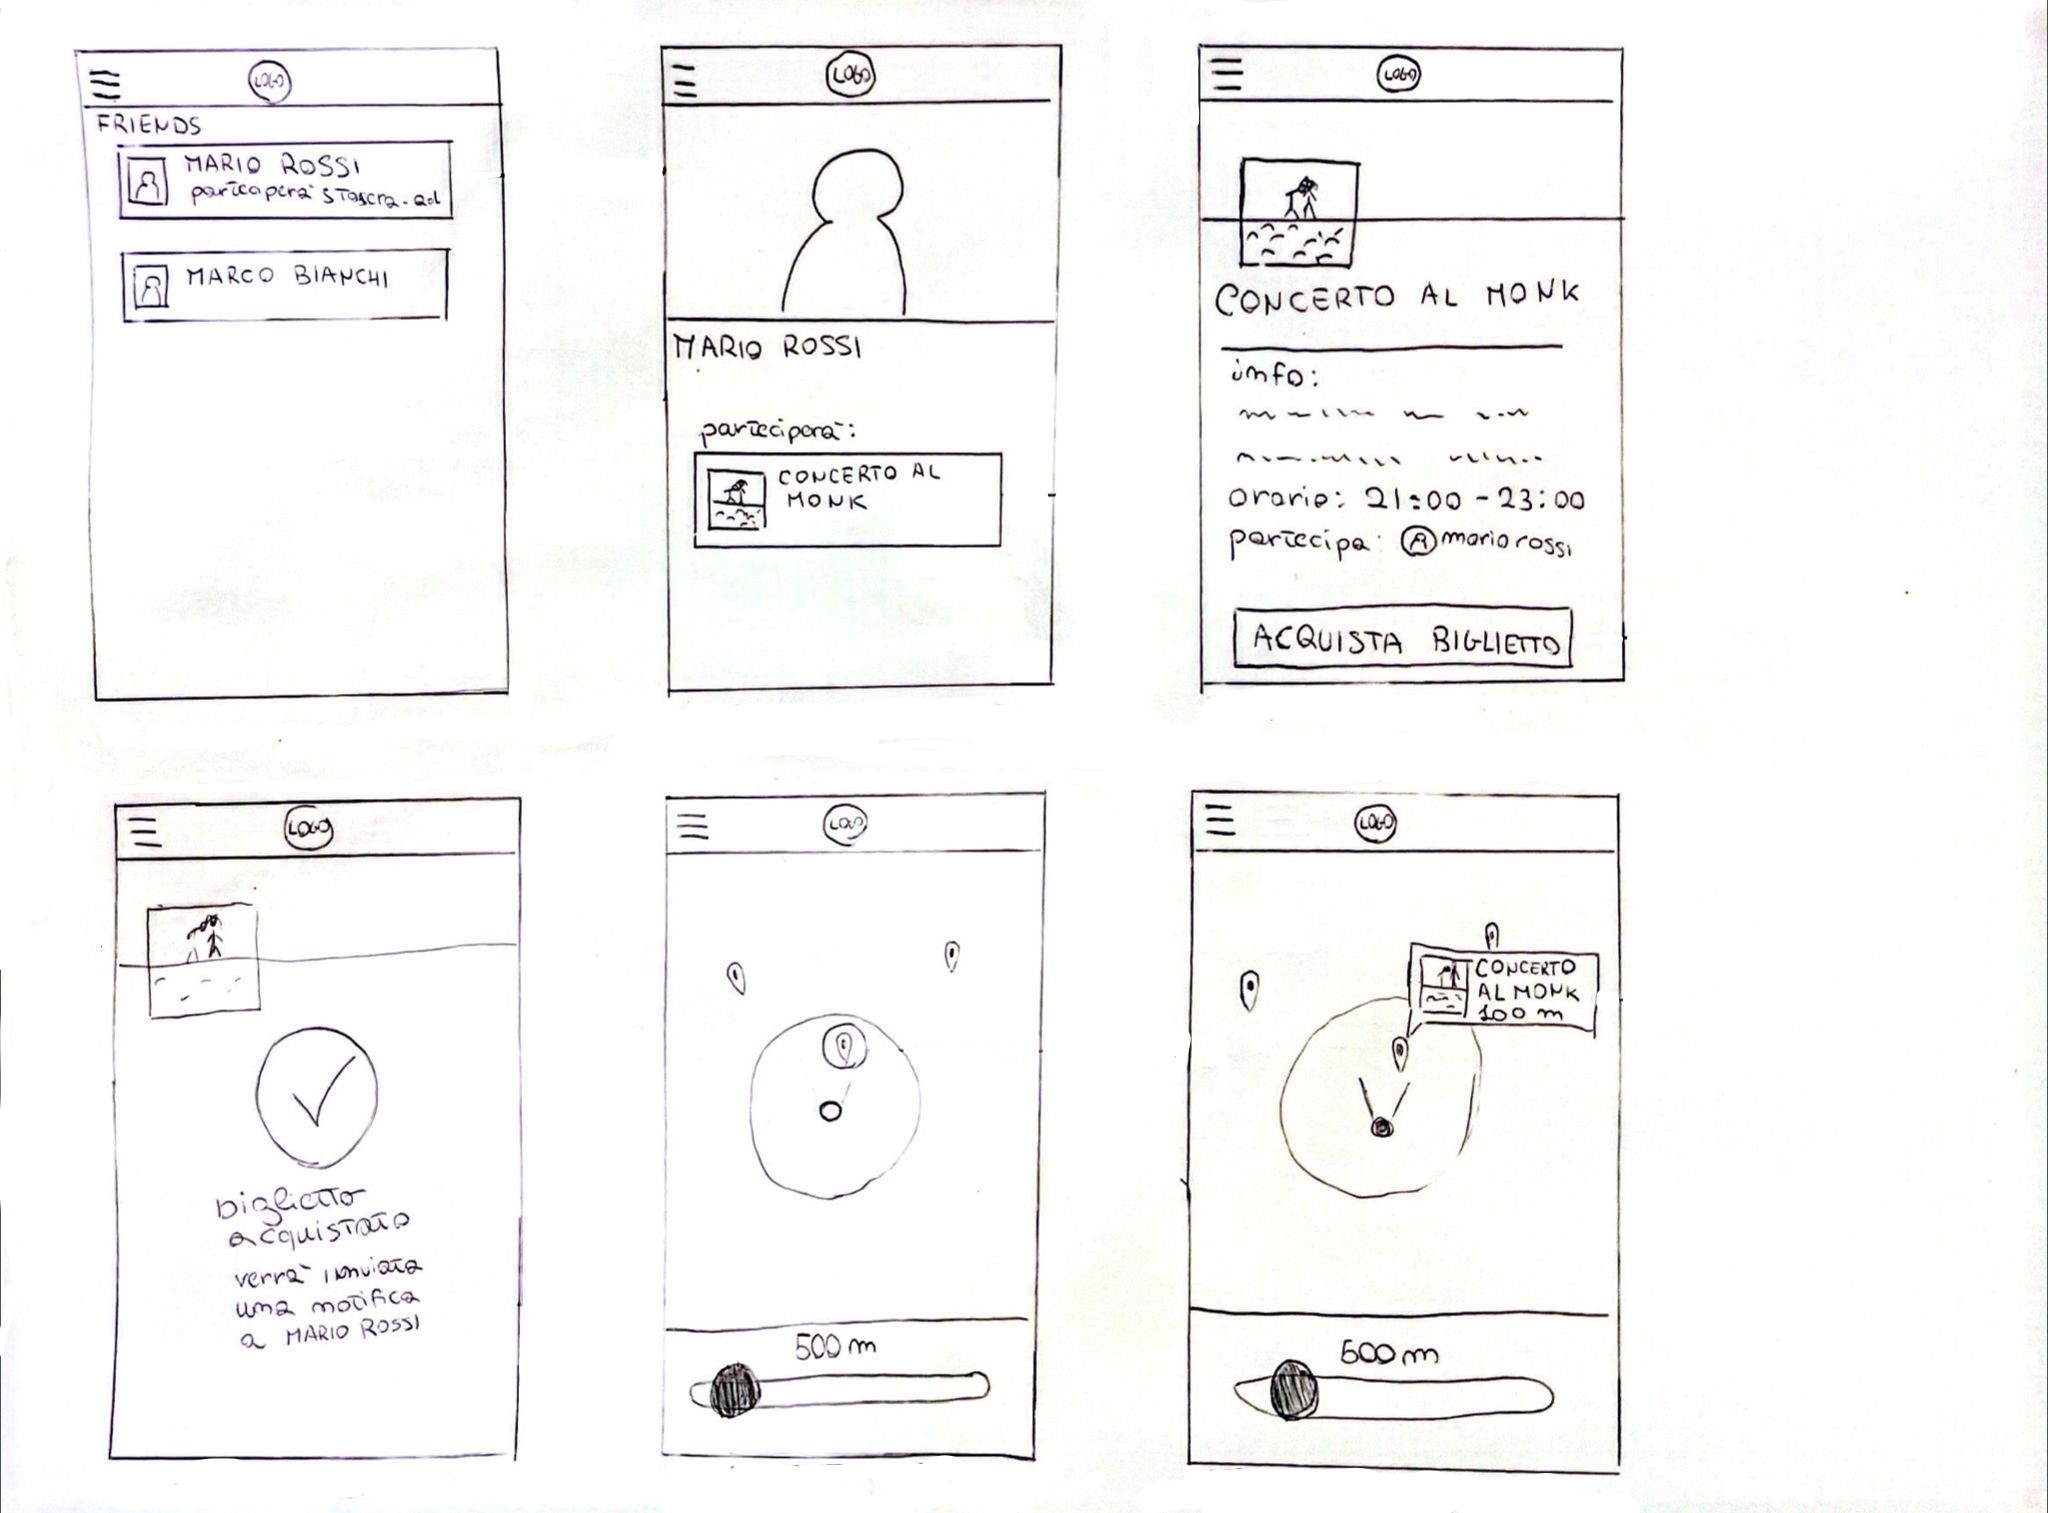 LOGO
FRIENDS
MARIO ROSSI
parteciperà stasera ad
MARCO BIANCHI
LOGO
MARIO ROSSI
parteciperà:
CONCERTO AL
MONK
LOGO
CONCERTO AL MONK
info:
orario: 21:00 - 23:00
partecipa: mario rossi
ACQUISTA BIGLIETTO
LOGO
biglietto
acquistato
verrà inviata
una notifica
a MARIO ROSSI
LOGO
500 m
LOGO
CONCERTO
AL MONK
100 m
500 m